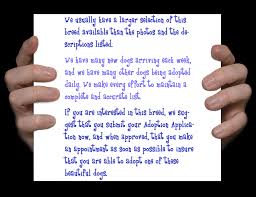 We usually have a larger selection of this
breed available than the photos and the de-
scriptions listed.
We have many new dogs arriving each week,
and we have many other dogs being adopted
daily. We make every effort to maintain a
complete and accurate list.
If you are interested in this breed, we sug-
gest that you submit your Adoption Applica-
tion now, and when approved, that you make
an appointment as soon as possible to insure
that you are able to adopt one of these
beautiful dogs.